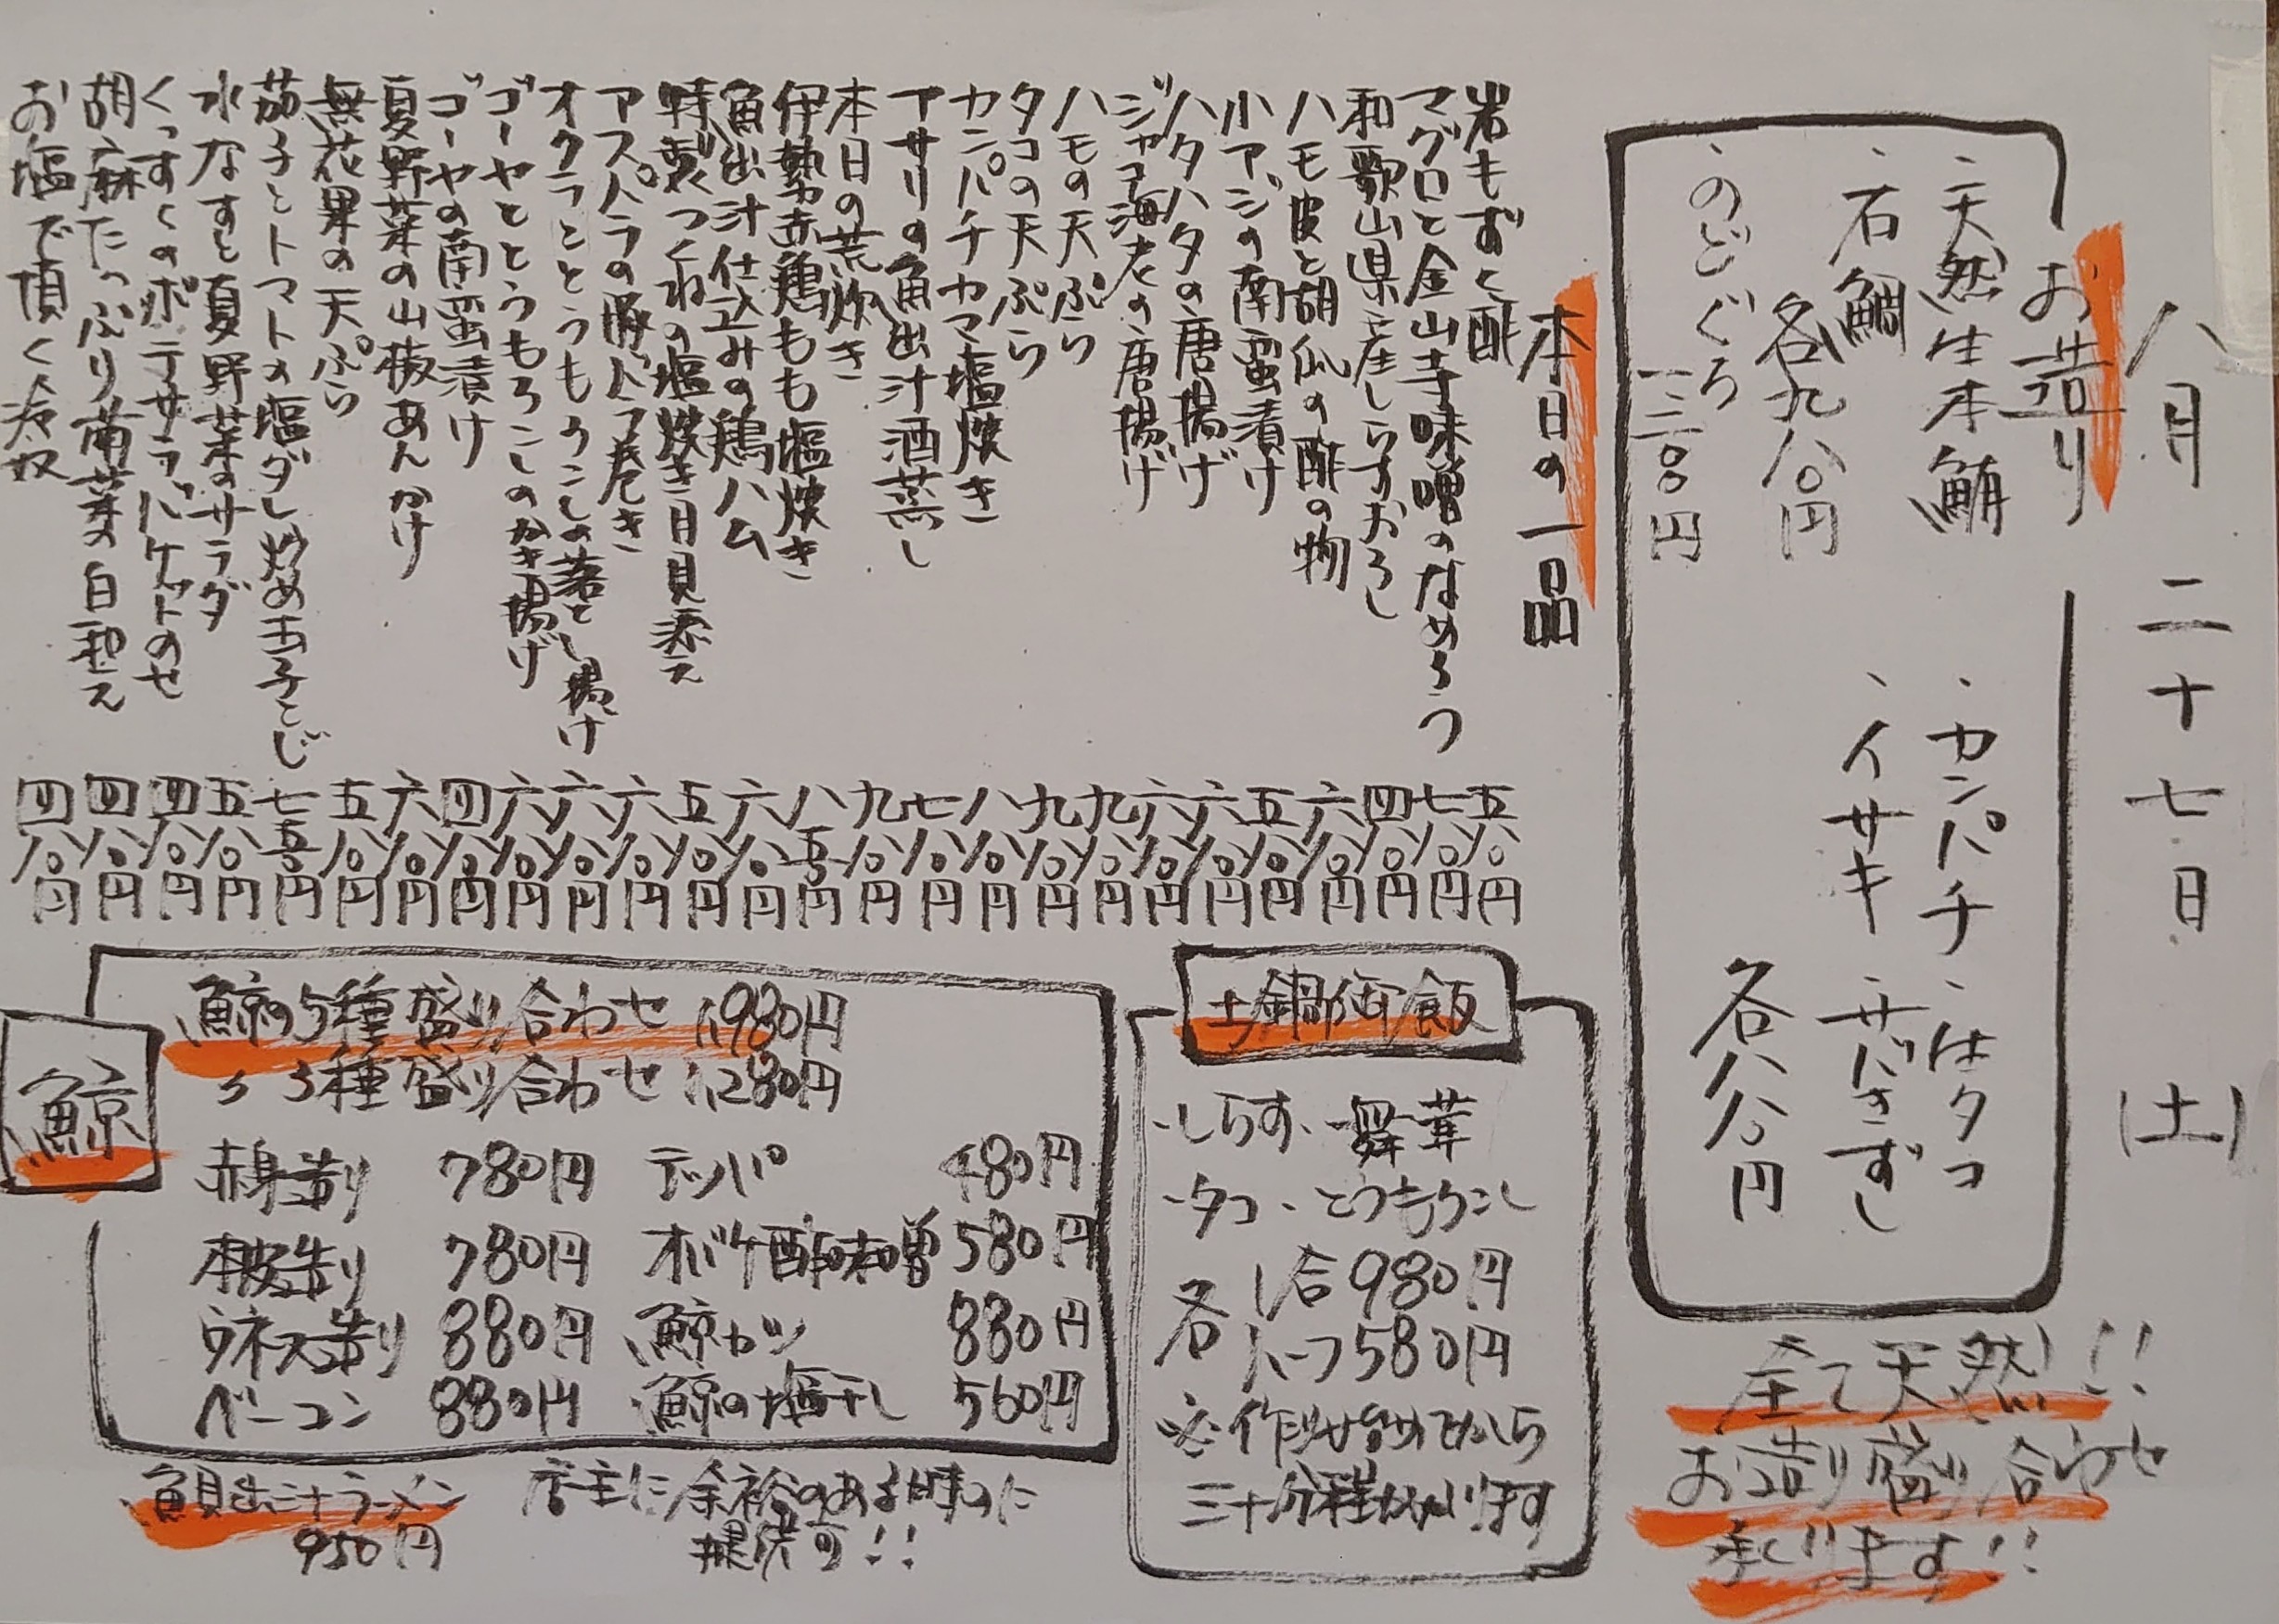 八月 二十七日 (土)
お造り
、天然生本鮪
、石鯛
各九八〇円
、のどぐろ
一二〇〇円
、カンパチ
、イサキ
、生タコ
、サバきずし
各八八〇円
全て天然!!
お造り盛り合わせ
承ります!!
本日の一品
岩もずく酢 五八〇円
マグロと金山寺味噌のなめろう 七八〇円
和歌山県産しらすおろし 四八〇円
ハモ皮と胡瓜の酢の物 六八〇円
小アジの南蛮漬け 五八〇円
ハタハタの唐揚げ 六八〇円
ジャコ海老の唐揚げ 六八〇円
ハモの天ぷら 九八〇円
タコの天ぷら 九八〇円
カンパチカマ塩焼き 八八〇円
アサリの魚出汁酒蒸し 七八〇円
本日の荒炊き 九八〇円
伊勢赤鶏もも塩焼き 八五〇円
魚出汁仕込みの鶏ハム 六八〇円
特製つくねの塩焼き月見添え 五八〇円
アスパラの豚バラ巻き 六八〇円
オクラととうもろこしの落とし揚げ 六八〇円
ゴーヤととうもろこしのかき揚げ 六八〇円
ゴーヤの南蛮漬け 四八〇円
夏野菜の山椒あんかけ 六八〇円
無花果の天ぷら 五八〇円
茄子とトマトの塩ダレ炒め玉子とじ 七五〇円
水なすと夏野菜のサラダ 五八〇円
くつすくのポテサラバケットのせ 四八〇円
胡麻たっぷり菊菜の白和え 四八〇円
お塩で頂く冷奴 四八〇円
土鍋御飯
・しらす ・舞茸
・タコ ・とうもろこし
各 1合980円
ハーフ580円
※作り始めてから
三十分程かかります
鯨
鯨の5種盛り合わせ 1,980円
〃 3種盛り合わせ 1,280円
赤身造り 780円 テッパ 480円
本皮造り 780円 オバケ酢味噌 580円
ウネス造り 880円 鯨カツ 880円
ベーコン 880円 鯨の塩干し 560円
魚貝出汁ラーメン
950円
店主に余裕のある時のに
提供可!!